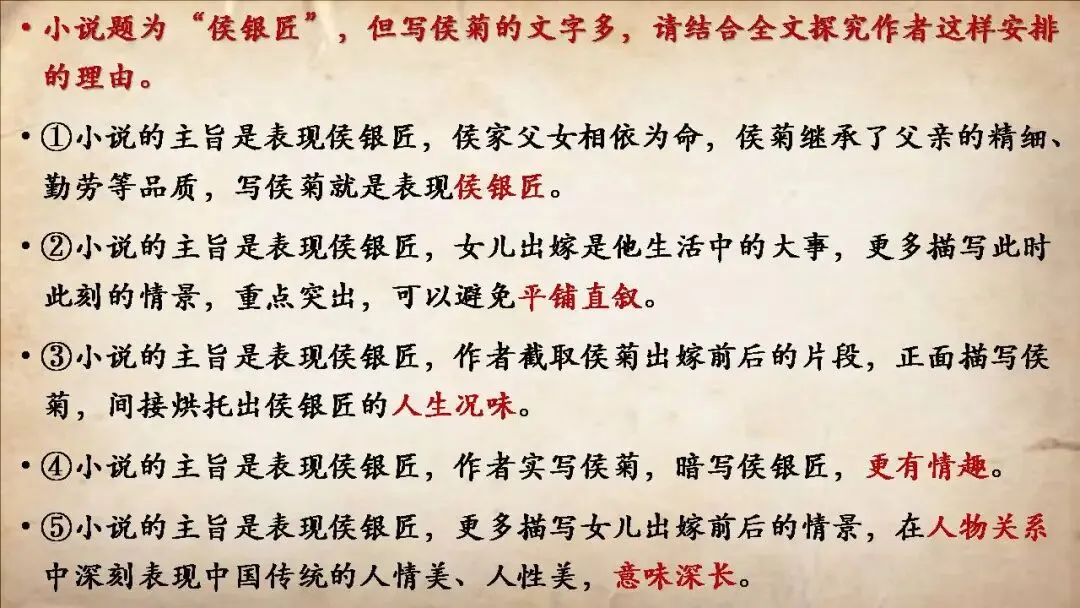 • 小说题为“侯银匠”，但写侯菊的文字多，请结合全文探究作者这样安排
的理由。
• ①小说的主旨是表现侯银匠，侯家父女相依为命，侯菊继承了父亲的精细、
勤劳等品质，写侯菊就是表现侯银匠。
• ②小说的主旨是表现侯银匠，女儿出嫁是他生活中的大事，更多描写此时
此刻的情景，重点突出，可以避免平铺直叙。
• ③小说的主旨是表现侯银匠，作者截取侯菊出嫁前后的片段，正面描写侯
菊，间接烘托出侯银匠的人生况味。
• ④小说的主旨是表现侯银匠，作者实写侯菊，暗写侯银匠，更有情趣。
• ⑤小说的主旨是表现侯银匠，更多描写女儿出嫁前后的情景，在人物关系
中深刻表现中国传统的人情美、人性美，意味深长。